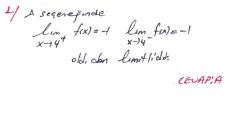 1/ A seçeneğinde
lim x→4⁺ f(x)=-1 lim x→4⁻ f(x)=-1
old.dan limitlidir.
CEVAP:A